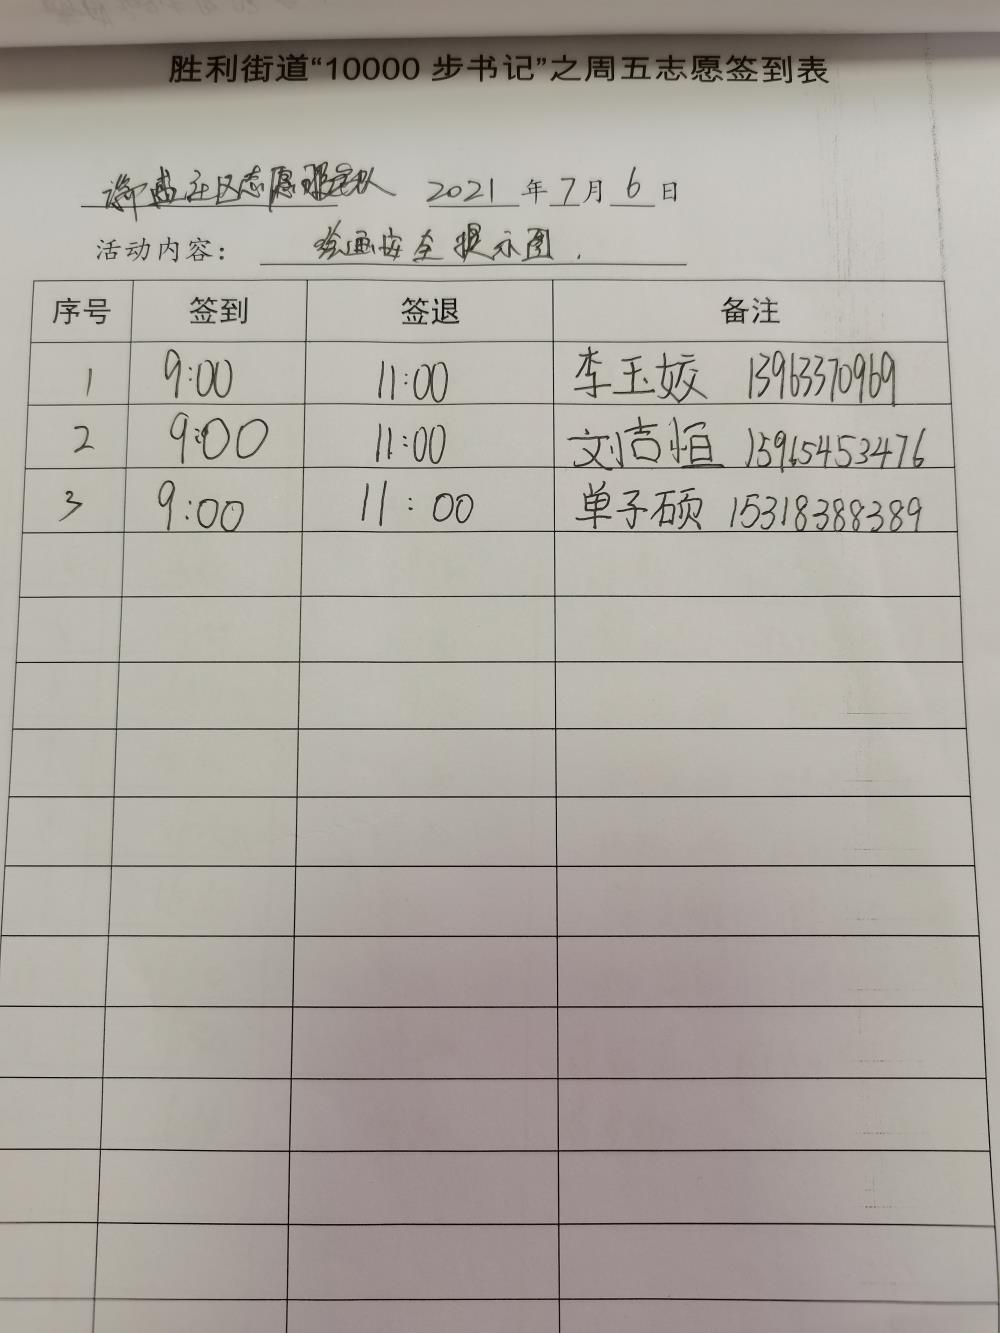 胜利街道“10000 步书记”之周五志愿签到表
社区志愿服务队 2021 年 7 月 6 日
活动内容： 绘画安全提示图.
序号 签到 签退 备注
1 9:00 11:00 李玉姣 13963370969
2 9:00 11:00 刘吉恒 15965453476
3 9:00 11:00 单子硕 15318388389